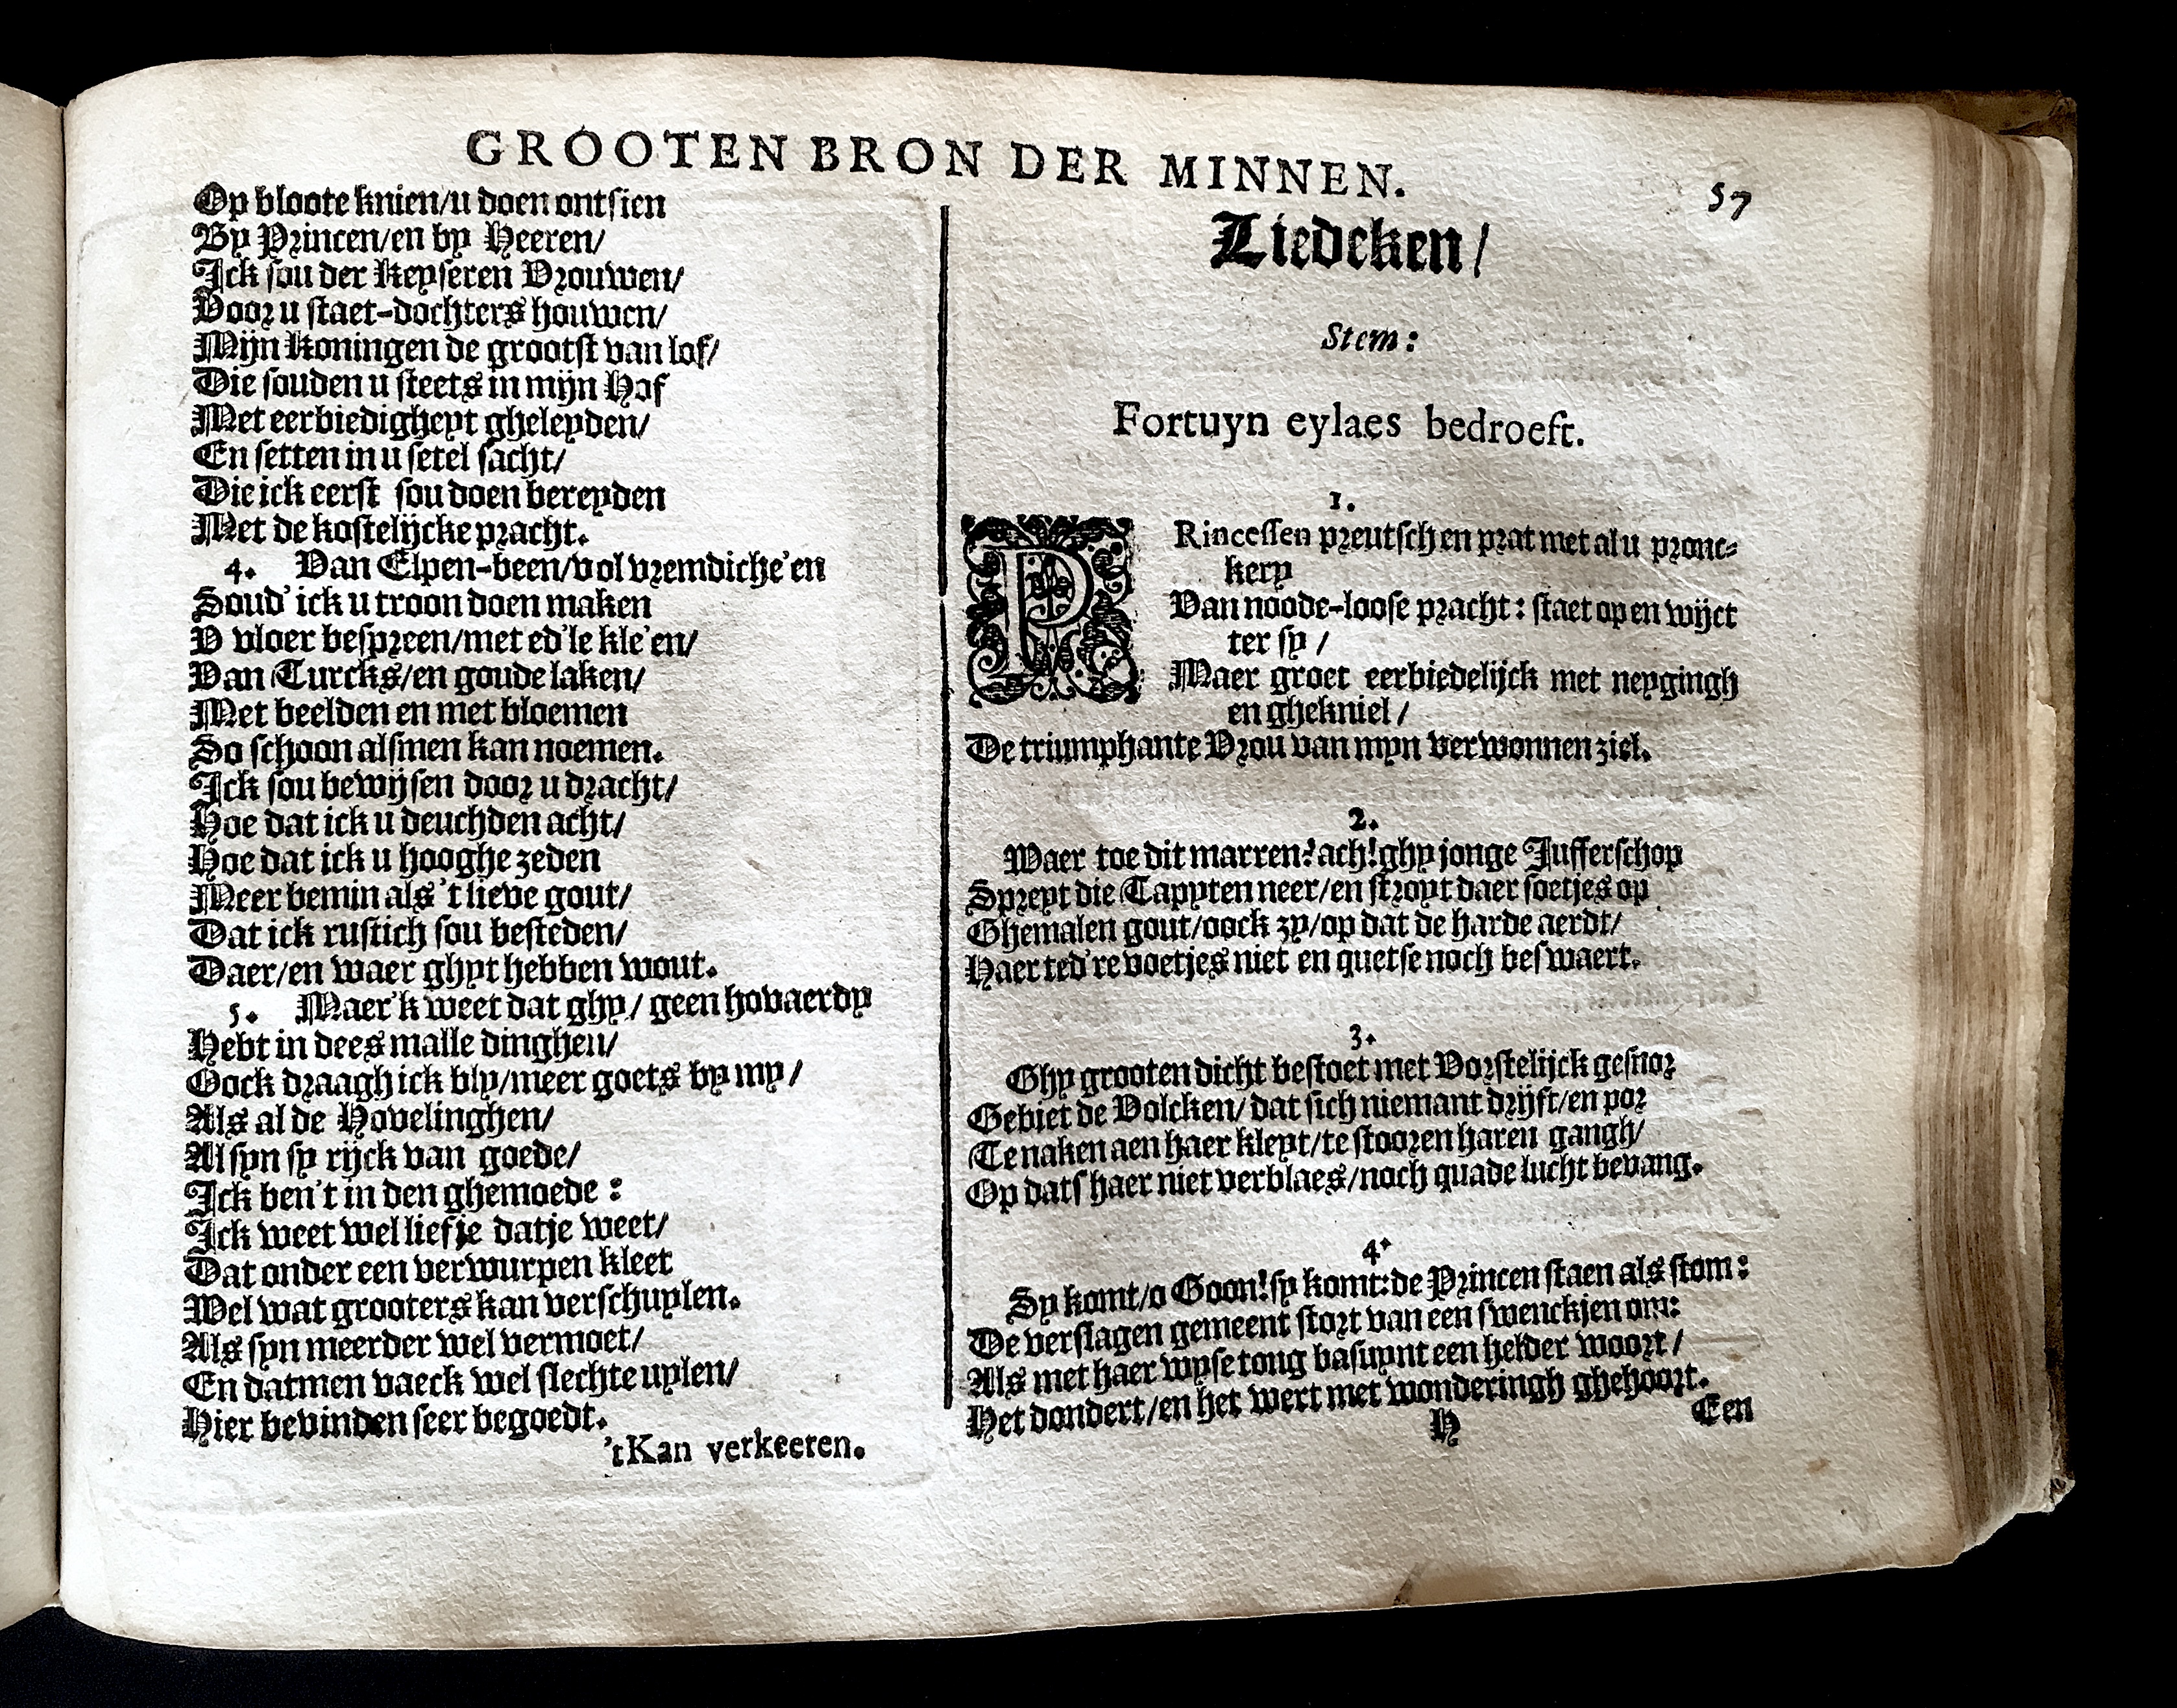 GROOTEN BRON DER MINNEN.
57
Op bloote knien/u doen ontsien
By Princen/en by Heeren/
Ick sou der Keyseren Vrouwen/
Voor u staet-dochters houwen/
Mijn Koningen de grootst van lof/
Die souden u steets in mijn Hof
Met eerbiedigheyt gheleyden/
En setten in u setel sacht/
Die ick eerst sou doen bereyden
Met de kostelijcke pracht.
4. Van Elpen-been/vol vremdiche'en
Soud' ick u troon doen maken
V vloer bespreen/met ed'le kle'en/
Van Turcks/en goude laken/
Met beelden en met bloemen
So schoon alsmen kan noemen.
Ick sou bewijsen door u dracht/
Hoe dat ick u deuchden acht/
Hoe dat ick u hooghe zeden
Meer bemin als 't lieve gout/
Dat ick rustich sou besteden/
Daer/en waer ghyt hebben wout.
5. Maer 'k weet dat ghy/ geen hovaerdy
Hebt in dees malle dinghen/
Oock draagh ick bly/meer goets by my/
Als al de Hovelinghen/
Al syn sy rijck van goede/
Ick ben't in den ghemoede:
Ick weet wel liefje datje weet/
Dat onder een verwurpen kleet
Wel wat grooters kan verschuylen.
Als syn meerder wel vermoet/
En datmen vaeck wel slechte uylen/
Hier bevinden seer begoedt.
'tKan verkeeren.
Liedeken/
Stem:
Fortuyn eylaes bedroeft.
1.
PRincessen preutsch en prat met al u pronc-
kery
Van noode-loose pracht: staet op en wijct
ter sy/
Maer groet eerbiedelijck met neygingh
en ghekniel/
De triumphante Vrou van myn verwonnen ziel.
2.
Waer toe dit marren? ach! ghy jonge Jufferschop
Spreyt die Tapyten neer/en stroyt daer soetjes op
Ghemalen gout/oock zy/op dat de harde aerdt/
Haer ted're voetjes niet en quetse noch beswaert.
3.
Ghy grooten dicht bestoet met Vorstelijck gesnor
Gebiet de Volcken/dat sich niemant drijft/en por
Te naken aen haer kleyt/te stooren haren gangh/
Op dats haer niet verblaes/noch quade lucht bevang.
4.
Sy komt/o Goon! sy komt: de Princen staen als stom:
De verslagen gemeent stort van een swenckjen om:
Als met haer wyse tong basuynt een helder woort/
Het dondert/en het wert met wonderingh ghehoort.
H
Een